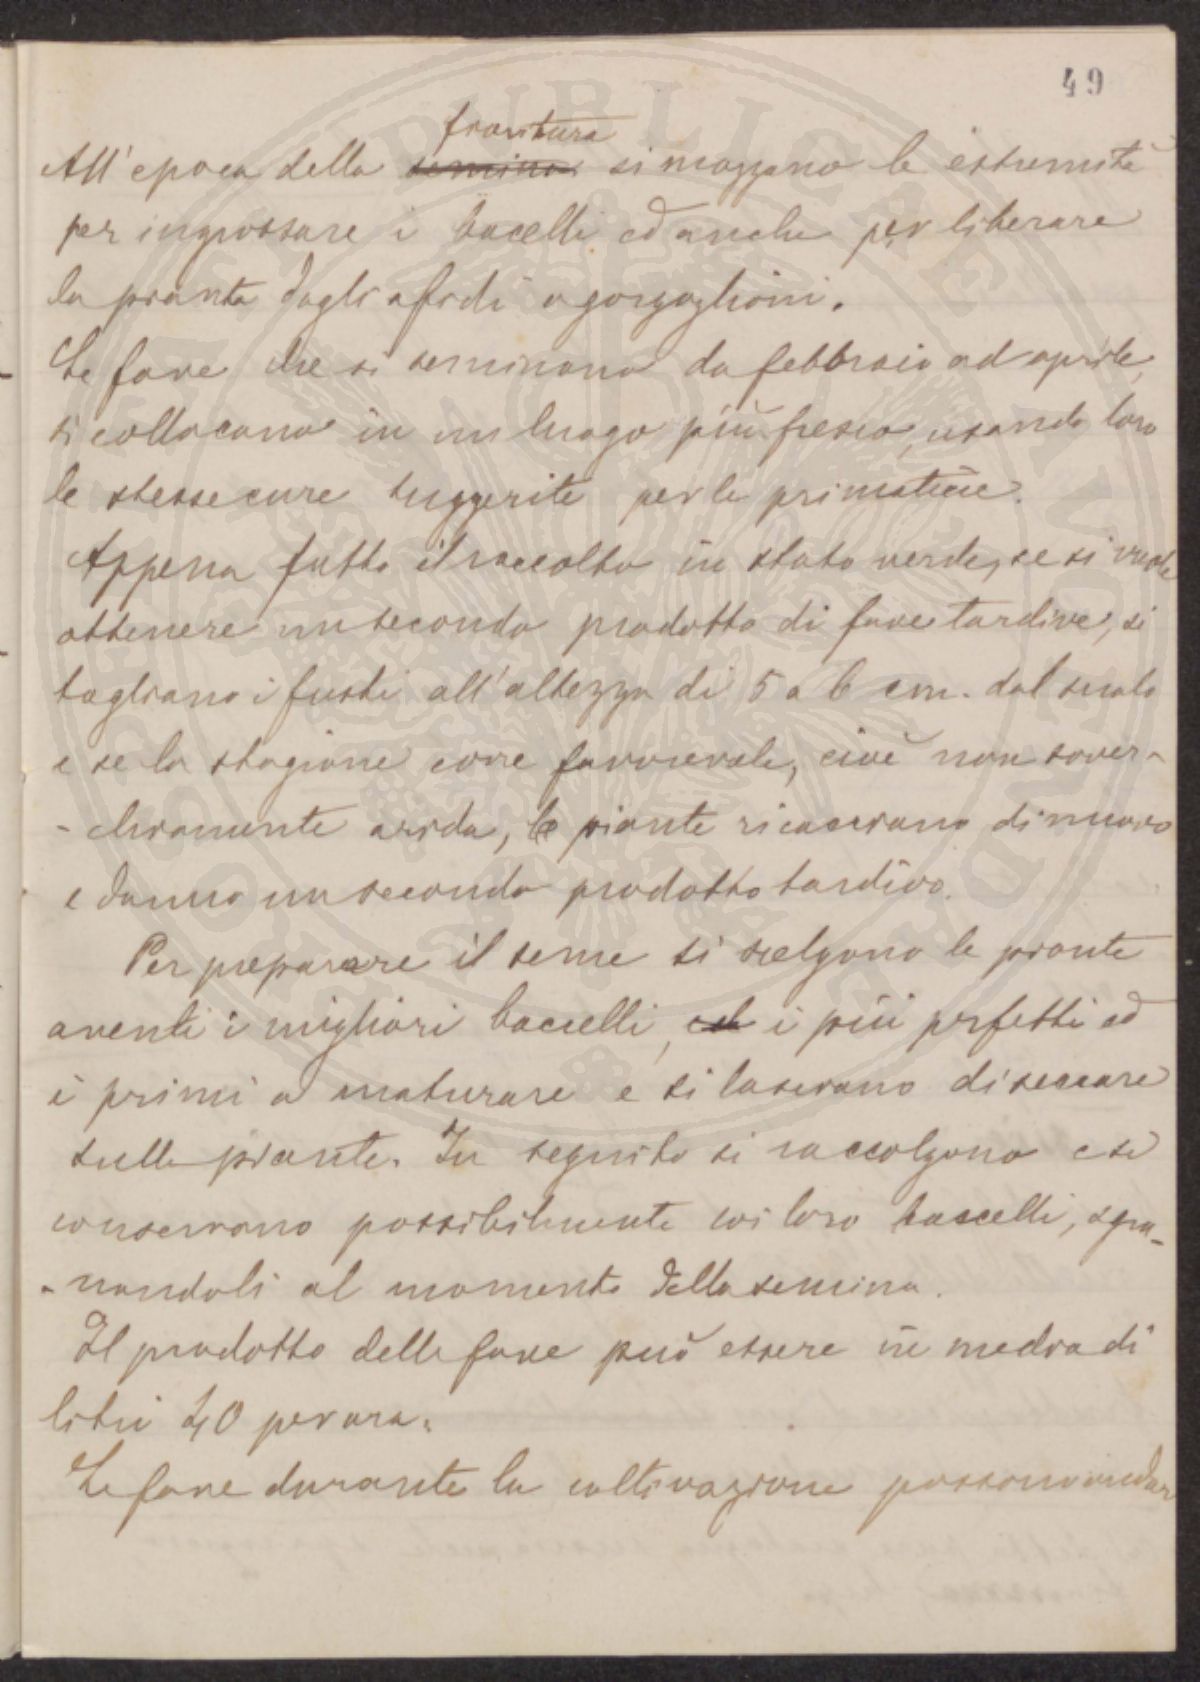 49
fioritura
All'epoca della semina si mozzano le estremità
per ingrossare i bacelli ed anche per liberare
la pianta dagli afidi o gorgoglioni.
Le fave che si seminano da febbraio ad aprile,
si collocano in un luogo più fresco, usando loro
le stesse cure suggerite per le primaticcie.
Appena fatto il raccolto in stato verde, se si vuole
ottenere un secondo prodotto di fave tardive, si
tagliano i fusti all'altezza di 5 a 6 cm. dal suolo
e se la stagione corre favorevole, cioè non sover-
-chiamente arida, le piante ricacciano di nuovo
e danno un secondo prodotto tardivo.
Per preparare il seme si scelgono le piante
aventi i migliori baccelli, i più perfetti ed
i primi a maturare e si lasciano diseccare
sulle piante. In seguito si raccolgono e si
conservano possibilmente coi loro baccelli, sgra-
-nandoli al momento della semina.
Il prodotto delle fave può essere in media di
litri 40 per ara.
Le fave durante la coltivazione possono andar